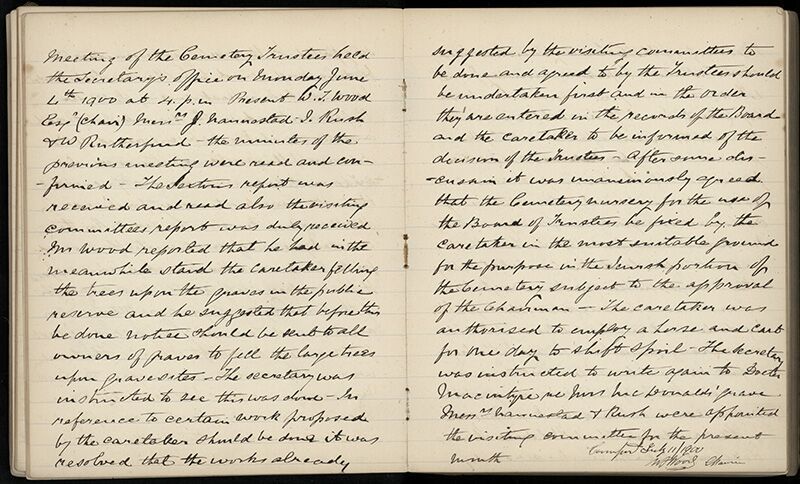 Meeting of the Cemetery Trustees held
the Secretary's office on Monday June
4th 1900 at 4. p.m Present W. T. Wood
Esqr (chair) Messrs J. Nannestad I. Rush
& W Rutherfurd - the minutes of the
previous meeting were read and con-
-firmed - The Sextons report was
received and read also the visiting
committees report was duly received
Mr Wood reported that he had in the
meanwhile staid the caretaker felling
the trees upon the graves in the public
reserve and he suggested that before this
be done notice should be sent to all
owners of graves to fell the large trees
upon grave sites - The secretary was
instructed to see this was done - In
reference to certain work proposed
by the caretaker should be done it was
resolved that the works already
suggested by the visiting committees to
be done and agreed to by the Trustees should
be undertaken first and in the order
they are entered in the records of the Board
and the caretaker to be informed of the
decision of the Trustees - After some dis-
-cussion it was unanimously agreed
that the Cemetery nursery for the use of
the Board of Trustees be fixed by the
caretaker in the most suitable ground
for the purpose in the Jewish portion of
the Cemetery subject to the approval
of the Chairman - The caretaker was
authorised to employ a horse and cart
for one day to shift spoil - The Secretary
was instructed to write again to Doctor
Macintyre re Mrs McDonalds' grave
Messrs Nannestad & Rush were appointed
the visiting committee for the present
month
July 11/1900
W T Wood